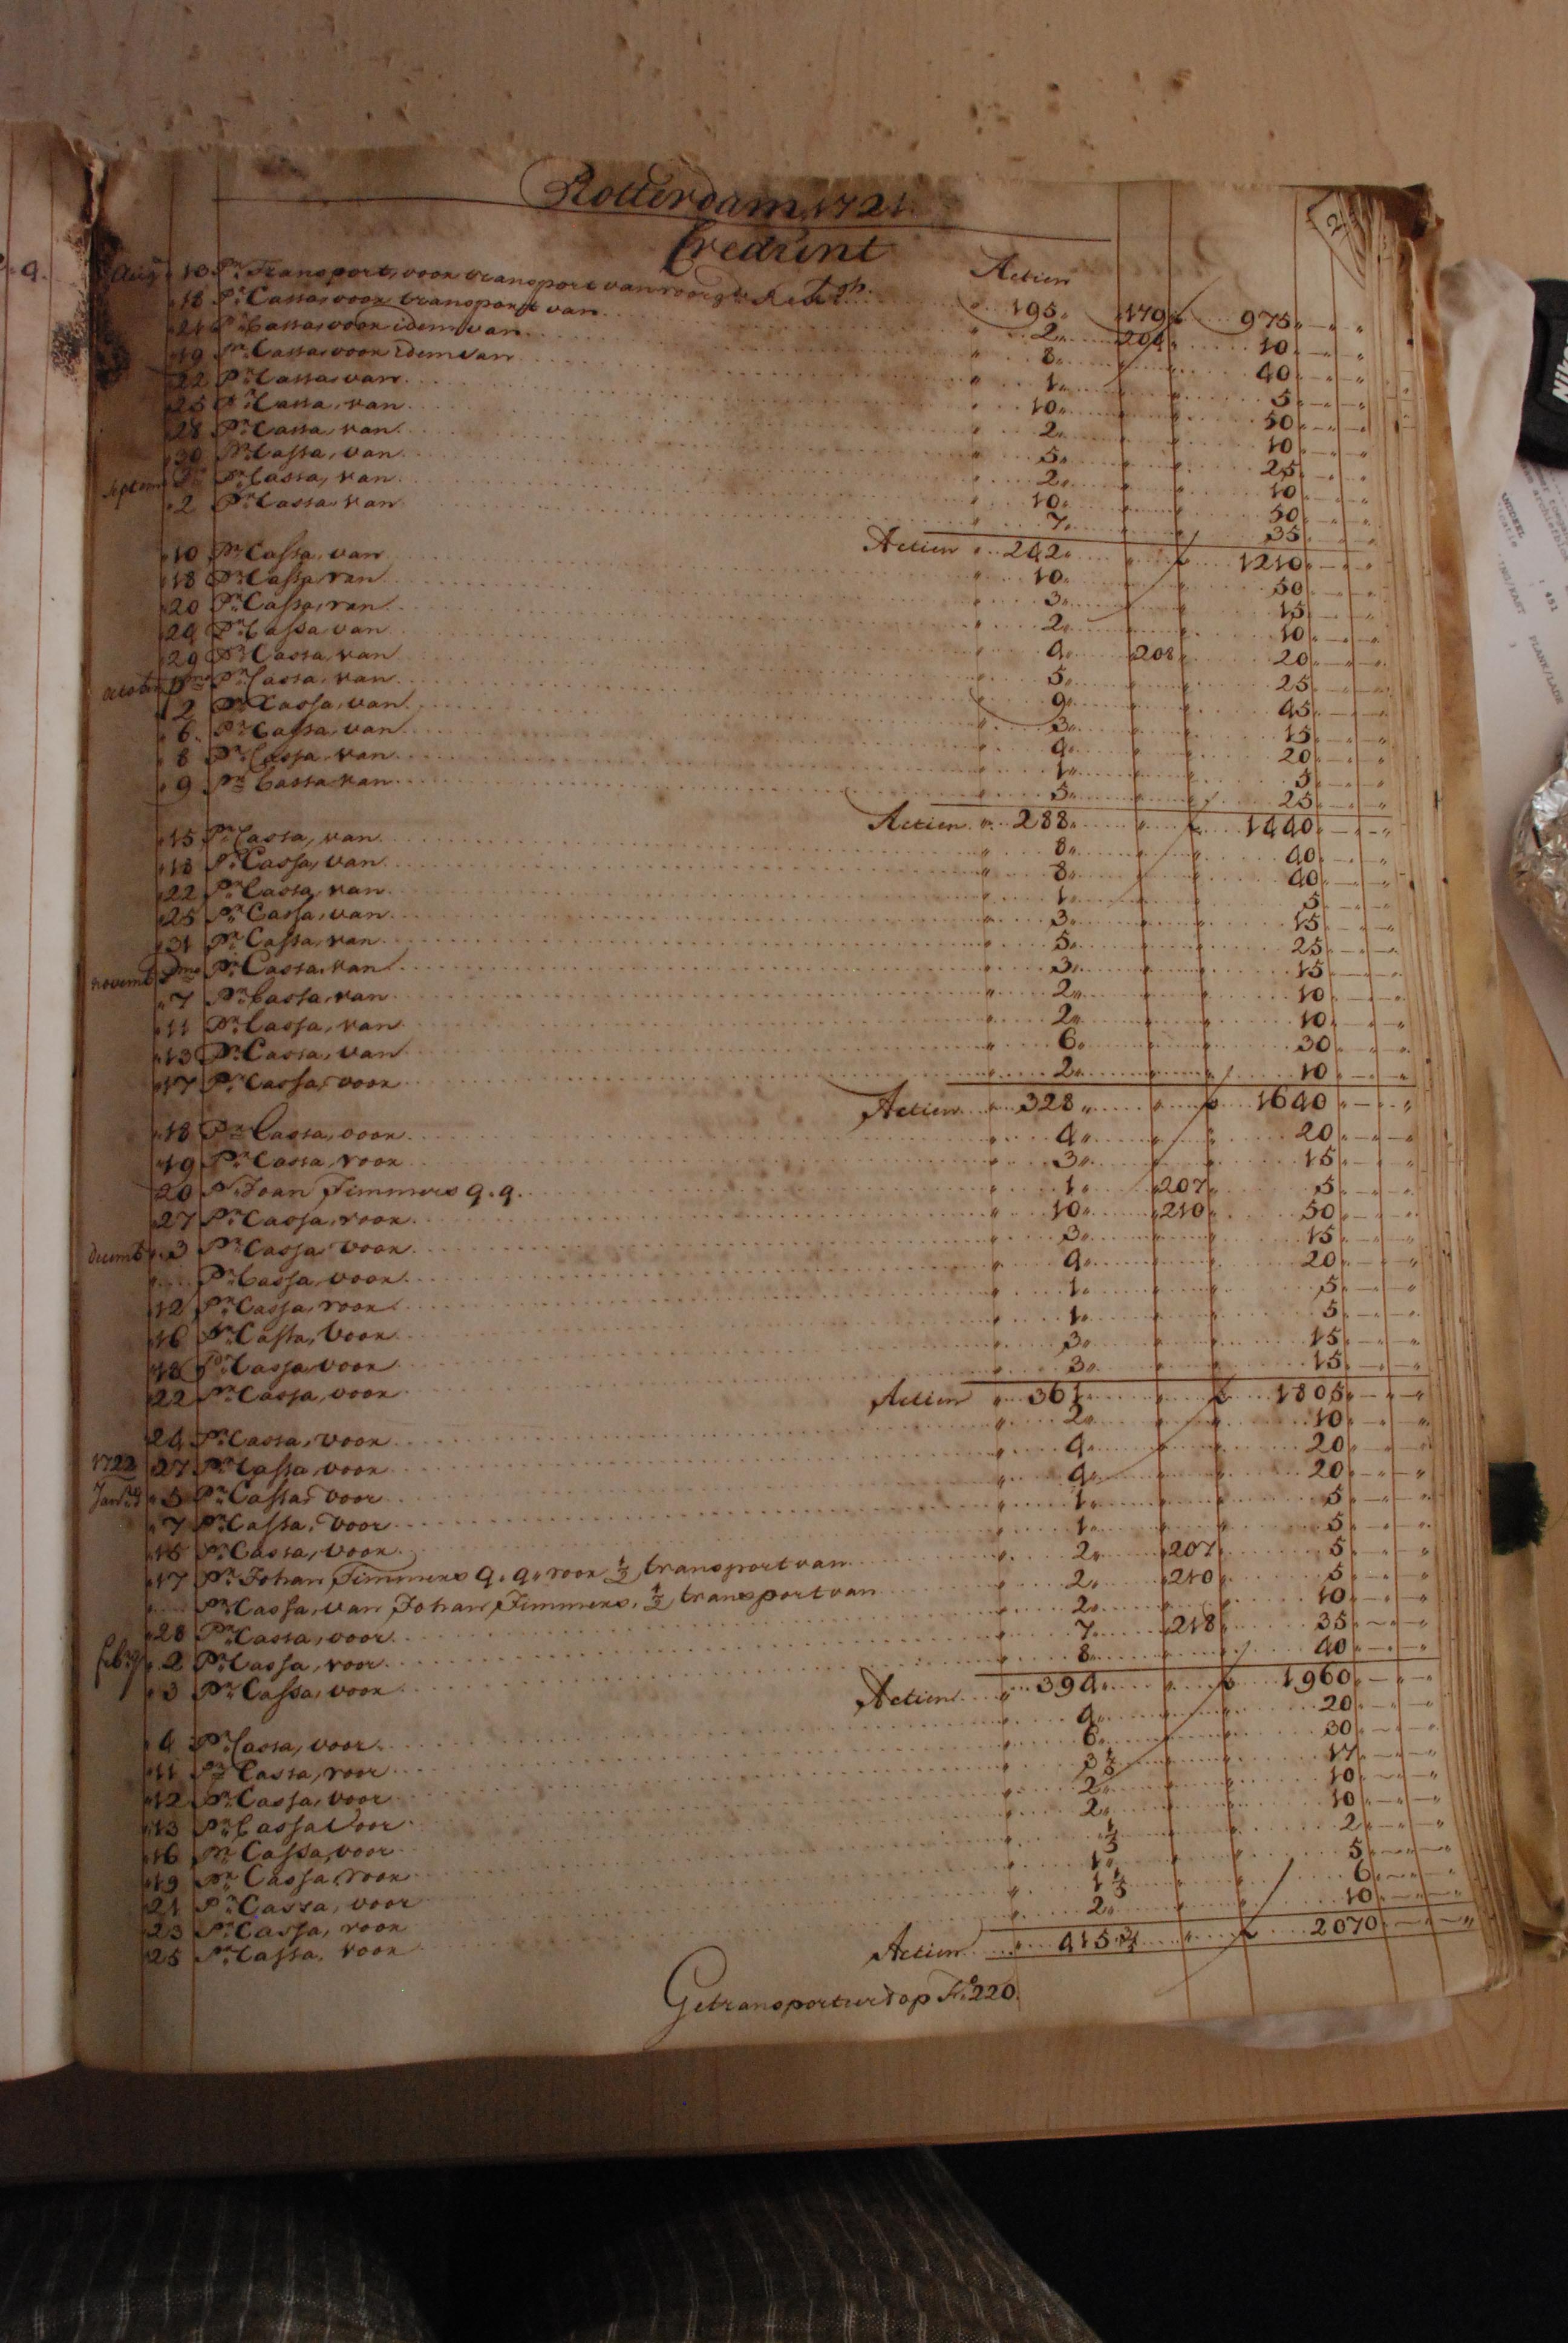 Rotterdam 1721
Credunt
Actien
Aug 10 Pr. Transport, voor transport van voorge 195 179 £ 975
18 Pr. Cassa voor transport van 2 204 10
21 Pr. Cassa voor idem van 8 40
19 Pr. Cassa voor idem van 1 5
22 Pr. Cassa van 10 50
25 Pr. Cassa, van 2 10
28 Pr. Cassa, van 5 25
30 Pr. Cassa, van 2 10
Septem Pmo Pr. Cassa, van 10 50
2 Pr. Cassa van 7 35
Actien 242 £ 1210
10 Pr. Cassa, van 10 50
18 Pr. Cassa van 3 15
20 Pr. Cassa, van 2 10
24 Pr. Cassa van 4 208 20
29 Pr. Cassa, van 5 25
octob Pmo Pr. Cassa, van 9 45
2 Pr. Cassa, van 3 15
6 Pr. Cassa, van 4 20
8 Pr. Cassa, van 1 5
9 Pr. Cassa van 5 25
Actien 288 £ 1440
15 Pr. Cassa, van 8 40
18 Pr. Cassa, van 8 40
22 Pr. Cassa, van 1 5
25 Pr. Cassa, van 3 15
31 Pr. Cassa, van 5 25
novemb Pmo Pr. Cassa, van 3 15
7 Pr. Cassa, van 2 10
11 Pr. Cassa, van 2 10
13 Pr. Cassa, van 6 30
17 Pr. Cassa, voor 2 10
Actien 328 £ 1640
18 Pr. Cassa, voor 4 20
19 Pr. Cassa, voor 3 15
20 Pr. Joan Timmers q. q. 1 207 5
27 Pr. Cassa, voor 10 210 50
decemb 3 Pr. Cassa voor 3 15
Pr. Cassa, voor 4 20
12 Pr. Cassa, voor 1 5
16 Pr. Cassa, Voor 1 5
18 Pr. Cassa voor 3 15
22 Pr. Cassa, voor 3 15
Actien 361 £ 1805
24 Pr. Cassa, voor 2 10
1722 27 Pr. Cassa, voor 4 20
Jan 5 Pr. Cassa voor 4 20
7 Pr. Cassa, voor 1 5
15 Pr. Cassa, voor 1 5
17 Pr. Johan Timmers q. q. voor ½ transport van 2 207 5
Pr. Cassa, van Johan Timmers, ½ transport van 2 210 5
28 Pr. Cassa, voor 2 10
feb 2 Pr. Cassa, voor 7 218 35
3 Pr. Cassa, voor 8 40
Actien 394 £ 1960
4 Pr. Cassa, voor 4 20
11 Pr. Cassa, voor 6 30
12 Pr. Cassa, voor 3 17
13 Pr. Cassa Voor 2 10
16 Pr. Cassa, voor 2 10
19 Pr. Cassa, voor 2
21 Pr. Cassa, voor 1 5
23 Pr. Cassa, voor 1 6
25 Pr. Cassa, voor 2 10
Actien 415 £ 2070
Getransporteerd op Fo. 220